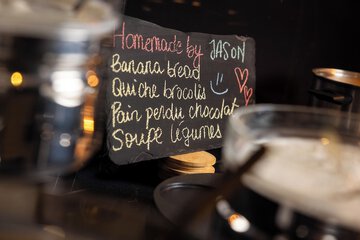 Homemade by JASON
Banana bread
Quiche brocolis
Pain perdu chocolat
Soupe légumes